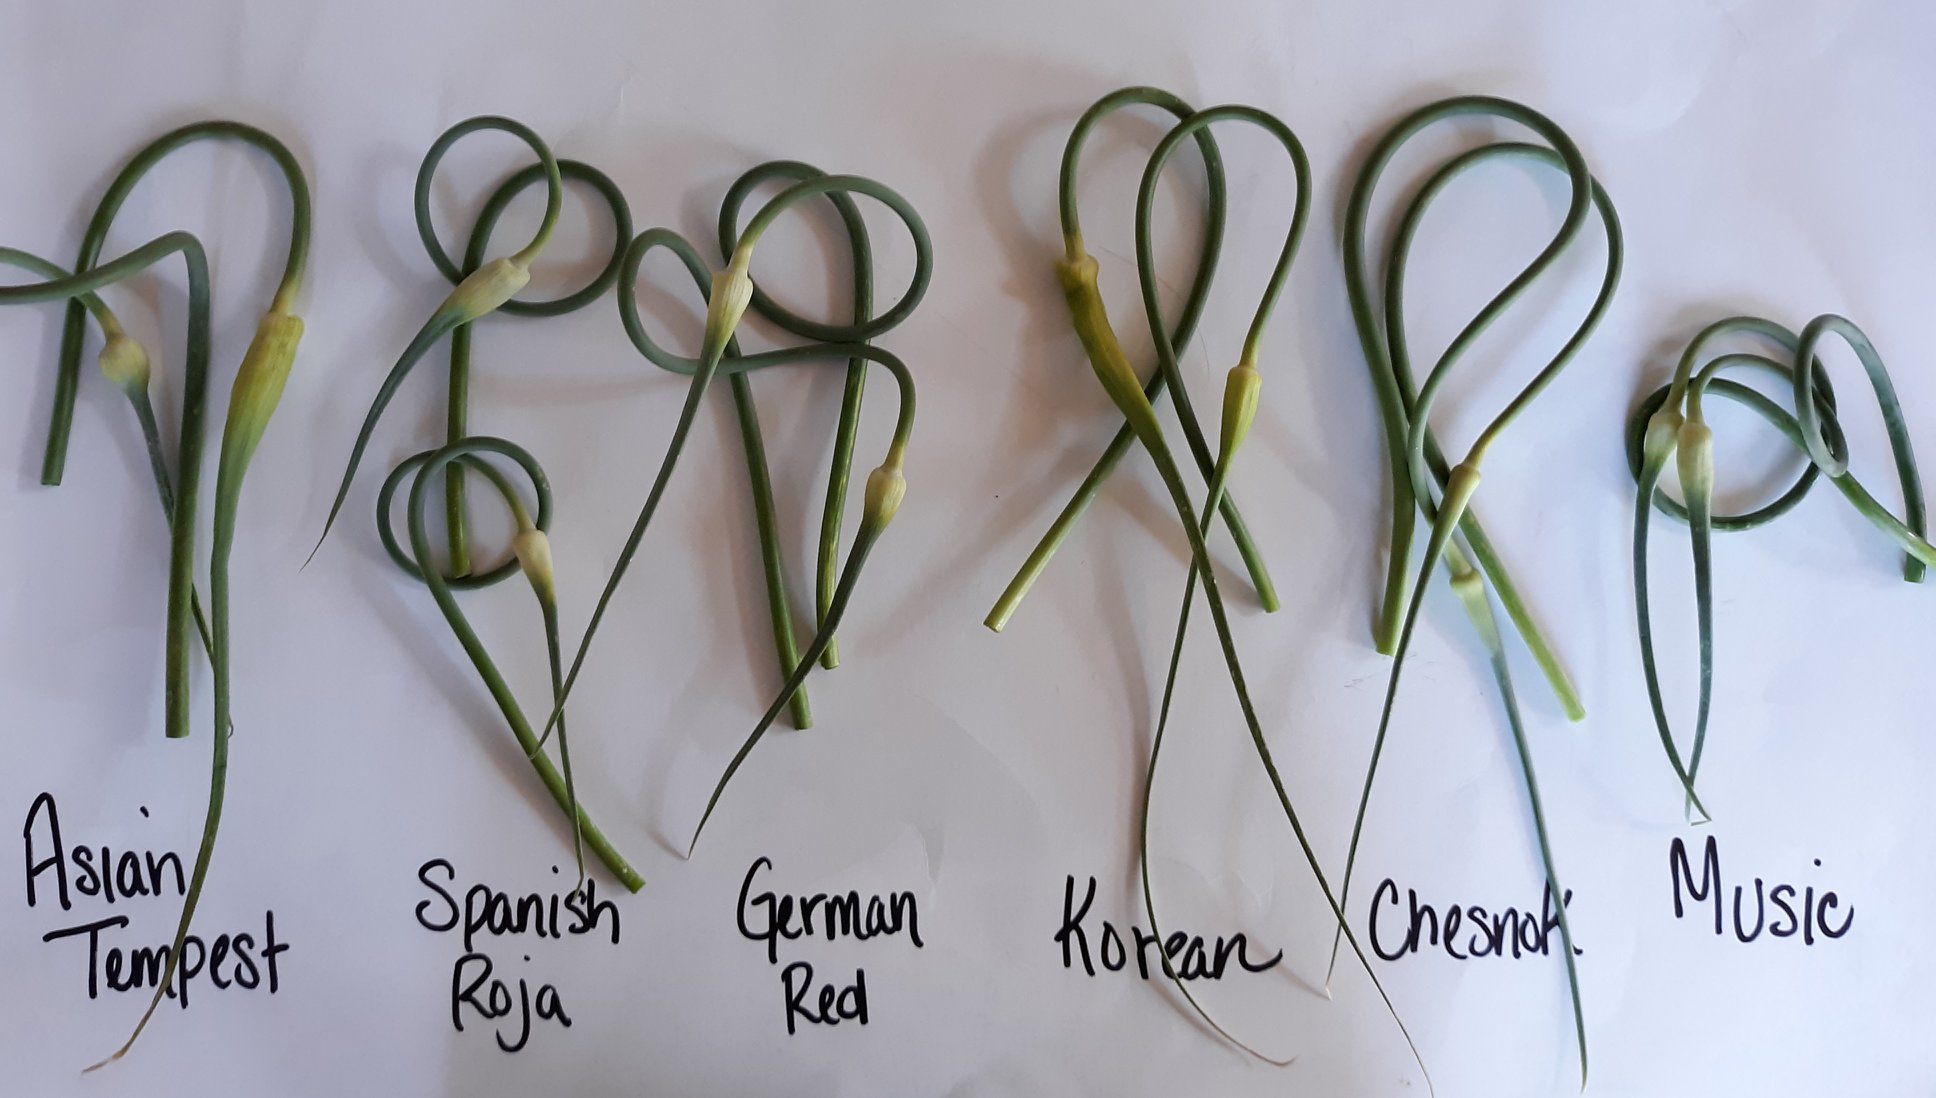 Asian
Tempest
Spanish
Roja
German
Red
Korean
Chesnok
Music